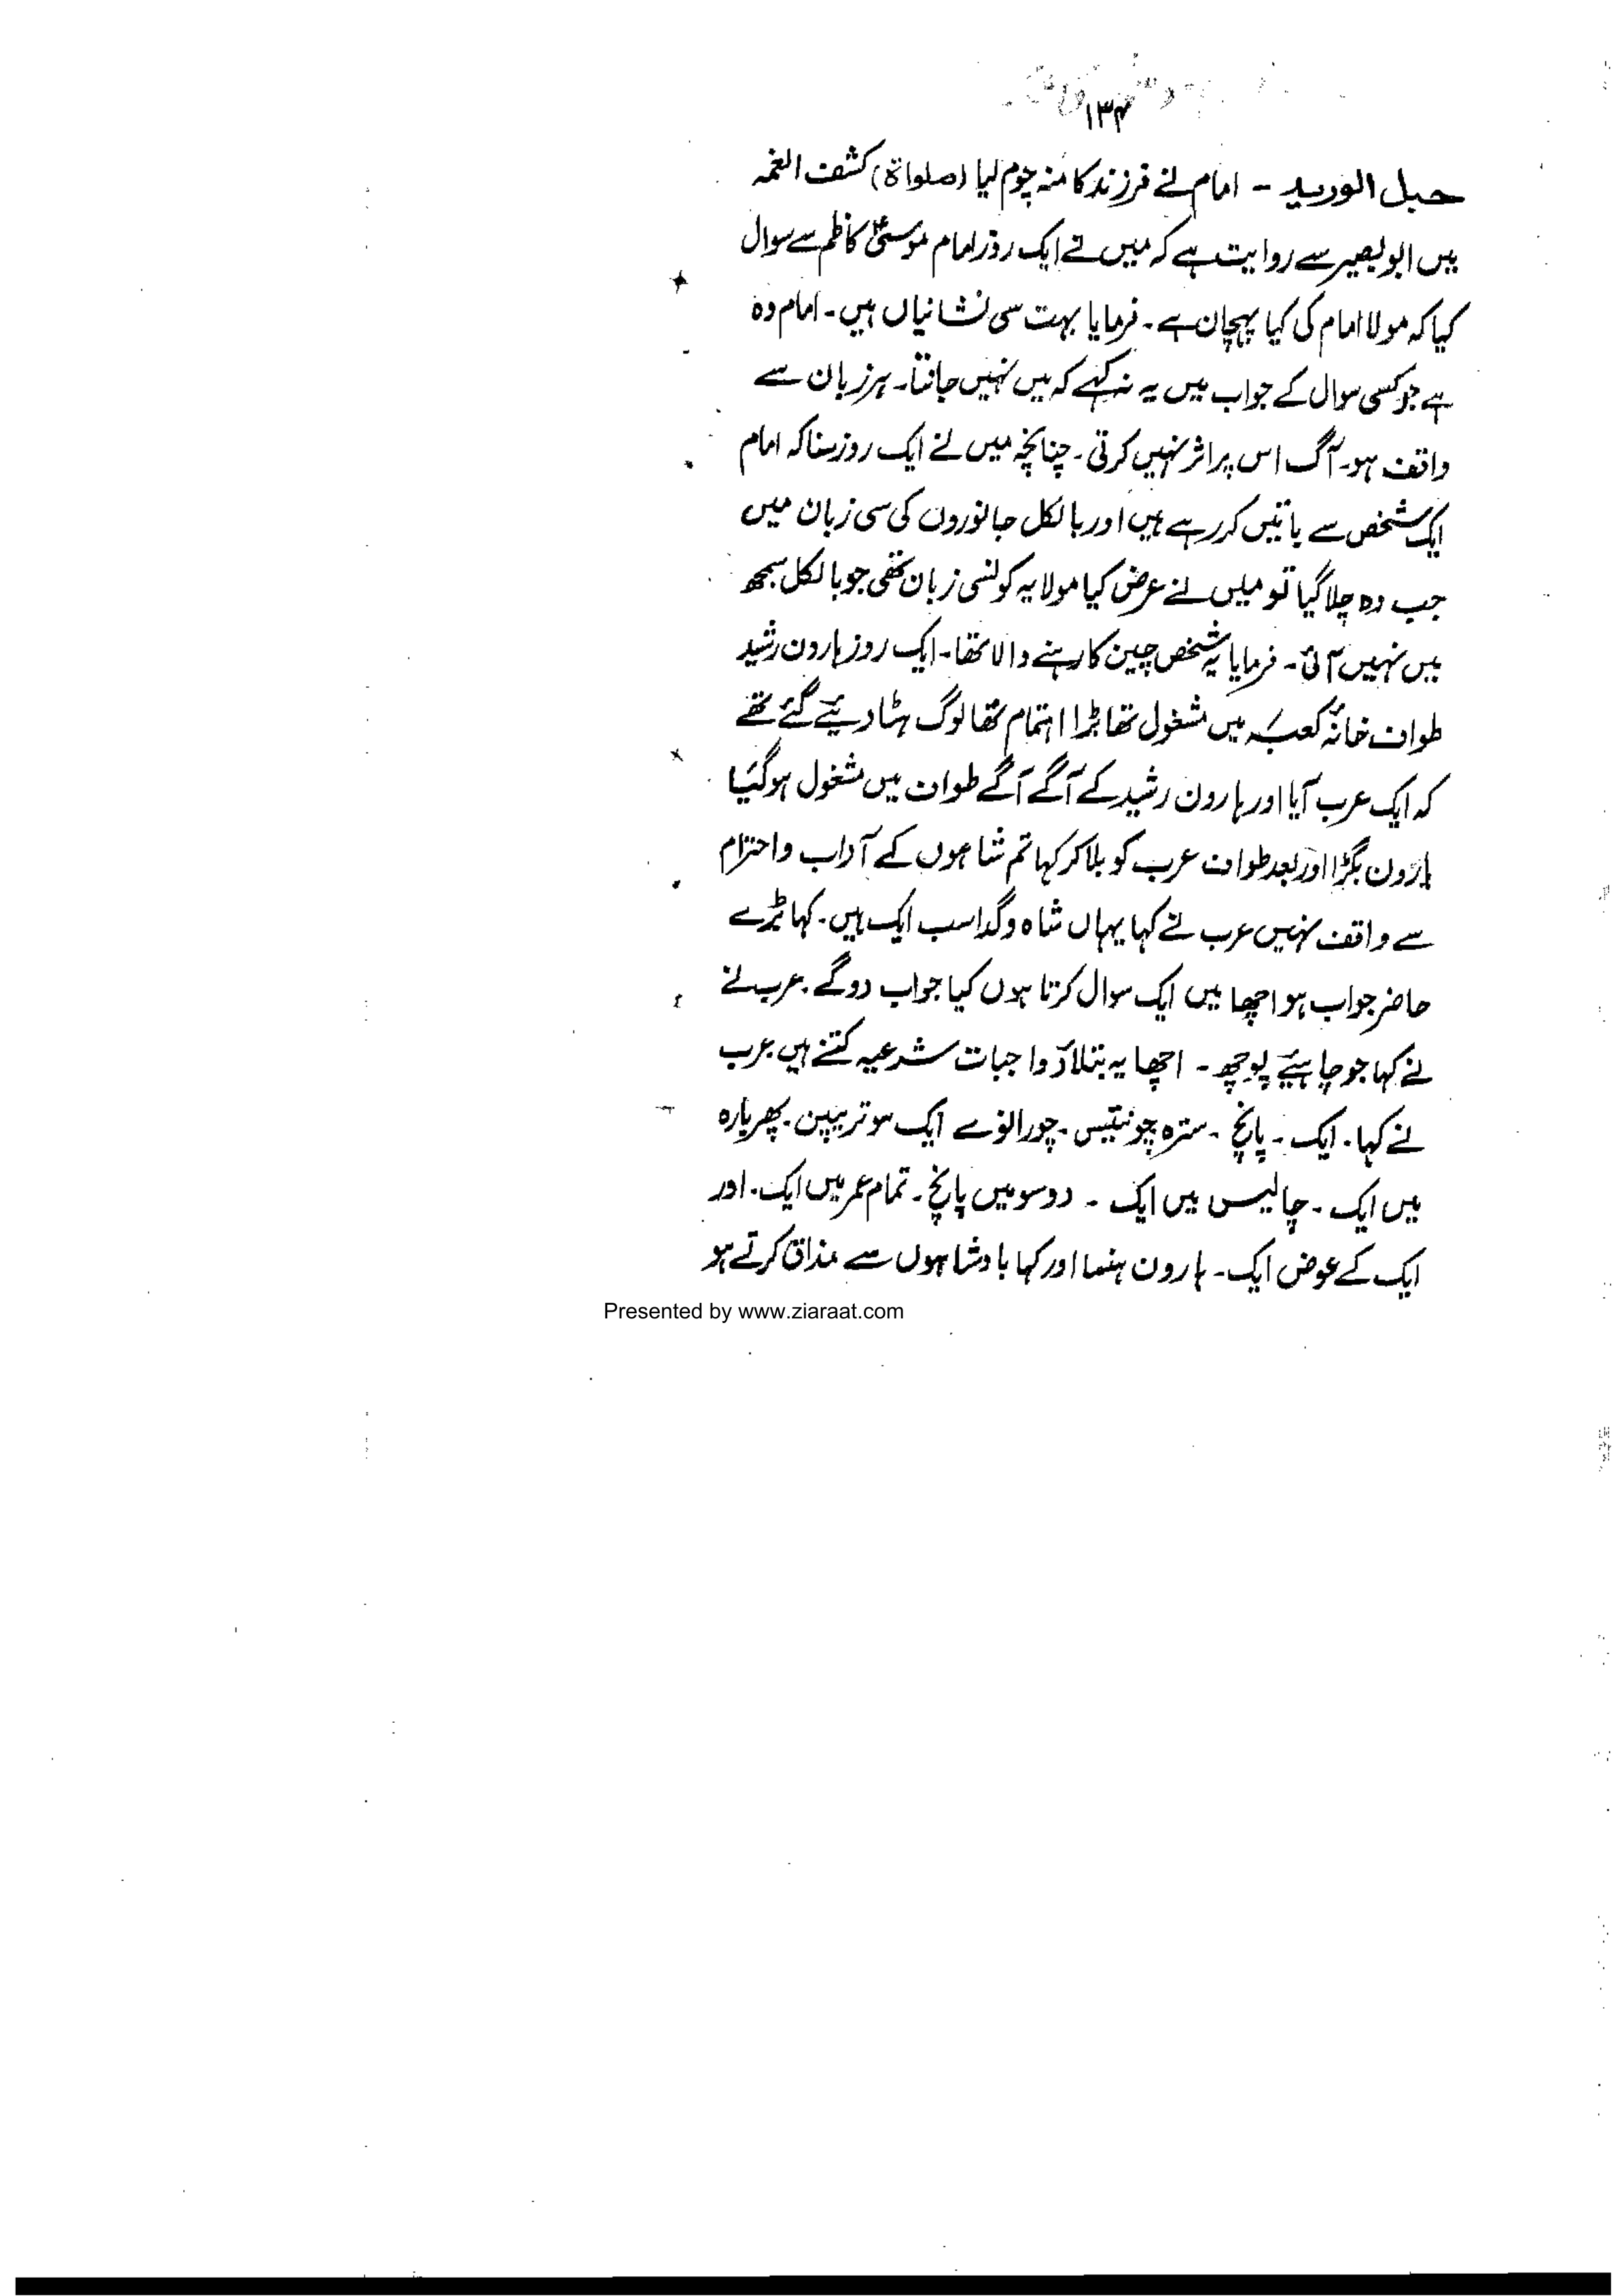 ۱۳۴
حبل الوريد - امام نے فرزند کا منہ چوم لیا (صلواۃ) کشف الغمہ
میں ابو بصیر سے روایت ہے کہ میں نے ایک روز امام موسیٰؑ کاظم سے سوال
کیا کہ مولا امام کی کیا پہچان ہے۔ فرمایا بہت سی نشانیاں ہیں۔ امام وہ
ہے جو کسی سوال کے جواب میں یہ نہ کہے کہ میں نہیں جانتا۔ ہر زبان سے
واقف ہو۔ آگ اس پر اثر نہیں کرتی۔ چنانچہ میں نے ایک روز سنا کہ امام
ایک شخص سے باتیں کر رہے ہیں اور بالکل جانوروں کی سی زبان میں
جب وہ چلا گیا تو میں نے عرض کیا مولا یہ کونسی زبان تھی جو بالکل سمجھ
میں نہیں آئی۔ فرمایا یہ شخص چین کا رہنے والا تھا۔ ایک روز ہارون رشید
طواف خانۂ کعبہ میں مشغول تھا بڑا اہتمام تھا لوگ ہٹا دیئے گئے تھے
کہ ایک عرب آیا اور ہارون رشید کے آگے آگے طواف میں مشغول ہوگیا
ہارون بگڑا اور بعد طواف عرب کو بلا کر کہا تم شاہوں کے آداب و احترام
سے واقف نہیں عرب نے کہا یہاں شاہ و گدا سب ایک ہیں۔ کہا بڑے
حاضر جواب ہو اچھا میں ایک سوال کرتا ہوں کیا جواب دو گے۔ عرب نے
نے کہا جو چاہیئے پوچھ۔ اچھا یہ بتلاؤ واجبات شرعیہ کتنے ہیں عرب
نے کہا۔ ایک۔ پانچ۔ سترہ چونتیس۔ چورانوے ایک سو تریپن۔ پھر بارہ
میں ایک۔ چالیس میں ایک۔ دو سو میں پانچ۔ تمام عمر میں ایک۔ اور
ایک کے عوض ایک۔ ہارون ہنسا اور کہا بادشاہوں سے مذاق کرتے ہو
Presented by www.ziaraat.com